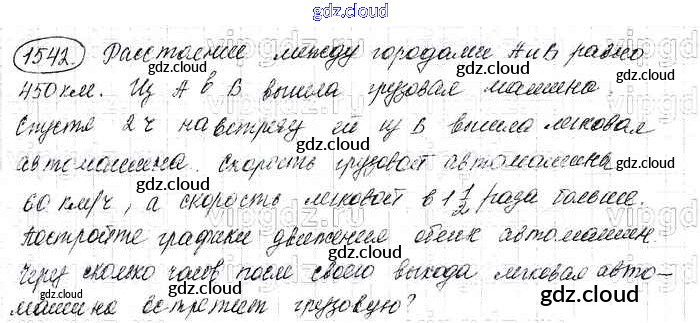 gdz.cloud
1542. Расстояние между городами А и В равно
450 км. Из А в В вышла грузовая машина.
Спустя 2 ч навстречу ей из В вышла легковая
автомашина. Скорость грузовой автомашины
60 км/ч, а скорость легковой в 1 1/2 раза больше.
Постройте графики движения обеих автомашин.
Через сколько часов после своего выхода легковая авто-
машина встретит грузовую?
gdz.cloud